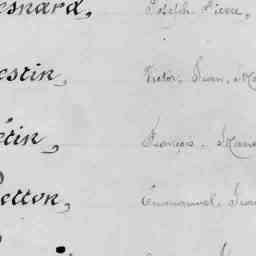 esnard, Joseph-Pierre,
estin, Victor-Jean-Ma
étin, François-Marie
etton, Emmanuel-Jean